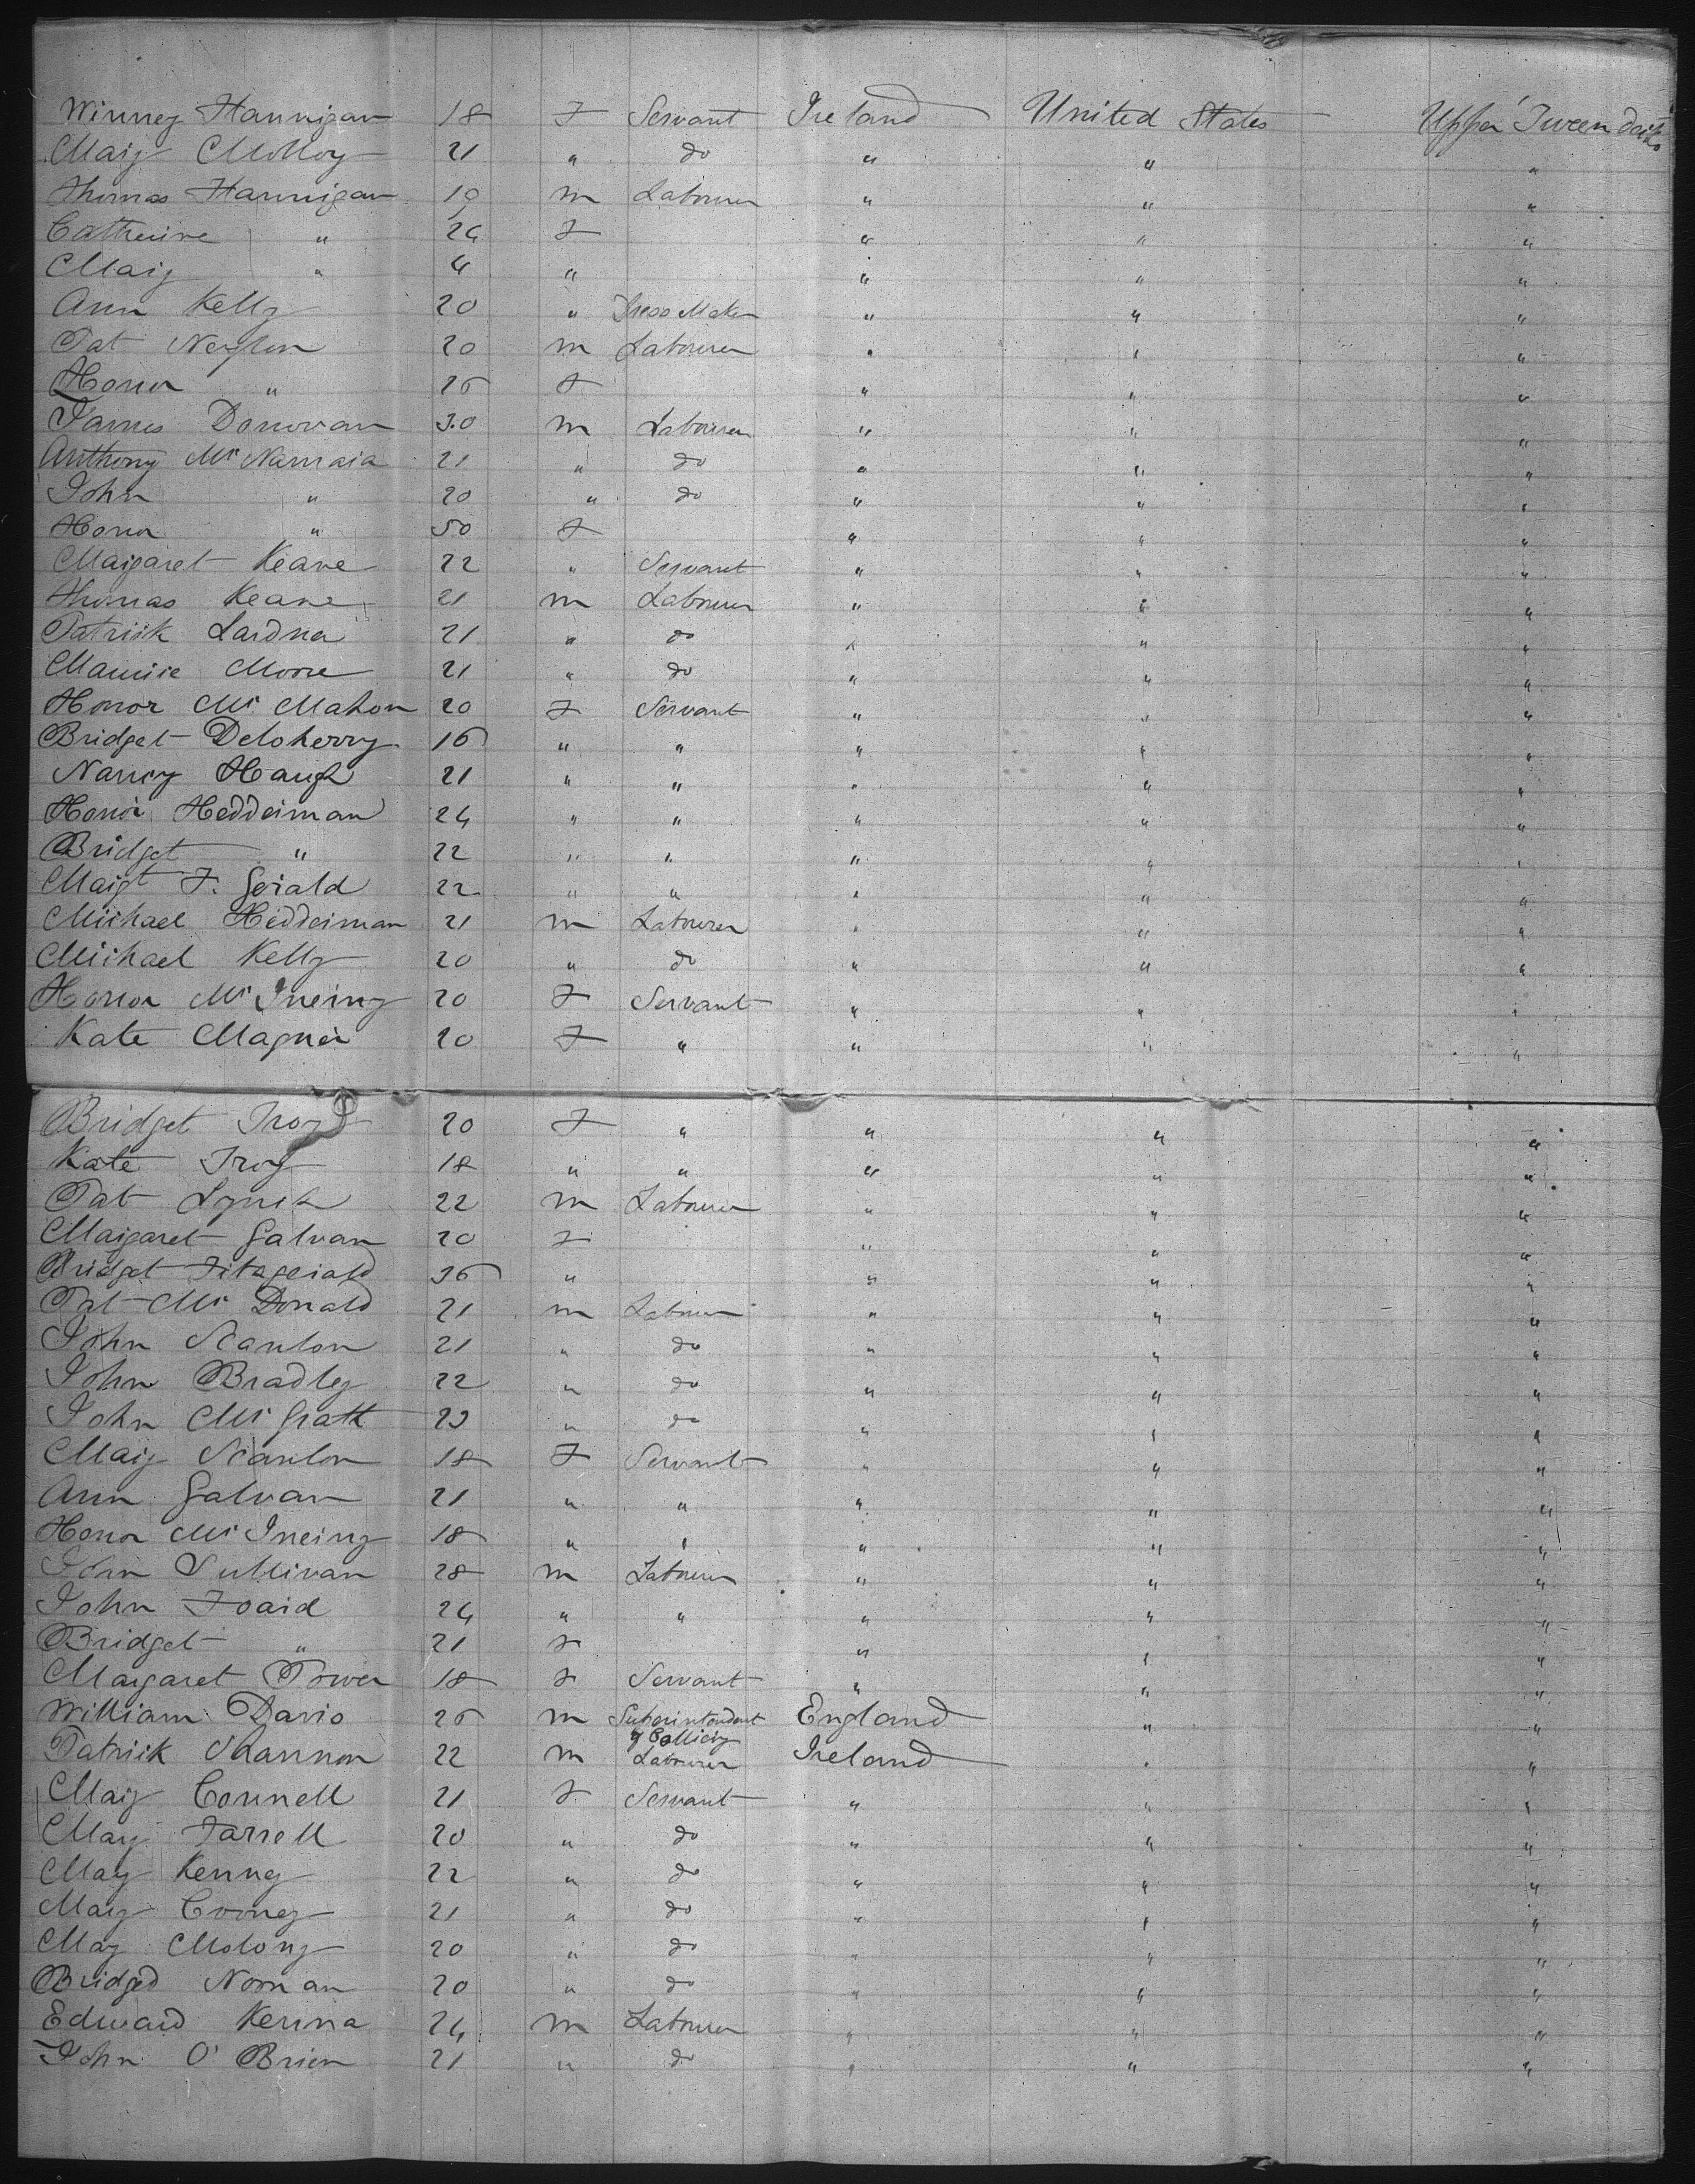 Winney Hannigan 18 F Servant Ireland United States Upper Tween decks
Mary Molloy 21 " do " " "
Thomas Hannigan 19 m Labourer " " "
Catherine " 24 F " " "
Mary " 4 " " " "
Ann Kelly 20 " Dress Maker " " "
Pat Neylon 20 m Labourer " " "
Honor " 26 F " " "
James Donovan 30 m Labourer " " "
Anthony Mc Namara 21 " do " " "
John " 20 " do " " "
Honor " 50 F " " "
Margaret Keane 22 " Servant " " "
Thomas Keane 21 m Labourer " " "
Patrick Lardner 21 " do " " "
Maurice Moore 21 " do " " "
Honor Mc Mahon 20 F Servant " " "
Bridget Deloherry 16 " " " " "
Nancy Haugh 21 " " " " "
Honor Hedderman 24 " " " " "
Bridget " 22 " " " " "
Margt F. Gerald 22 " " " " "
Michael Hedderman 21 m Labourer " " "
Michael Kelly 20 " do " " "
Honor Mc Inerny 20 F Servant " " "
Kate Magner 20 F " " " "
Bridget Troy 20 F " " " "
Kate Troy 18 " " " " "
Pat Lynch 22 m Labourer " " "
Margaret Galvan 20 F " " "
Bridget Fitzgerald 36 " " " "
Pat Mc Donald 21 m Labourer " " "
John Scanlon 21 " do " " "
John Bradley 22 " do " " "
John Mc Grath 23 " do " " "
Mary Scanlon 18 F Servant " " "
Ann Galvan 21 " " " " "
Honor Mc Inerny 18 " " " " "
John Sullivan 28 m Labourer " " "
John Foard 24 " " " " "
Bridget " 21 F " " "
Margaret Power 18 F Servant " " "
William Davis 26 m Superintendent England " "
of Colliery
Patrick Shannon 22 m Labourer Ireland " "
Mary Connell 21 F Servant " " "
Mary Farrell 20 " do " " "
Mary Kenney 22 " do " " "
Mary Cooney 21 " do " " "
May Molony 20 " do " " "
Bridged Noonan 20 " do " " "
Edward Kenna 24 m Labourer " " "
John O' Brien 21 " do " " "